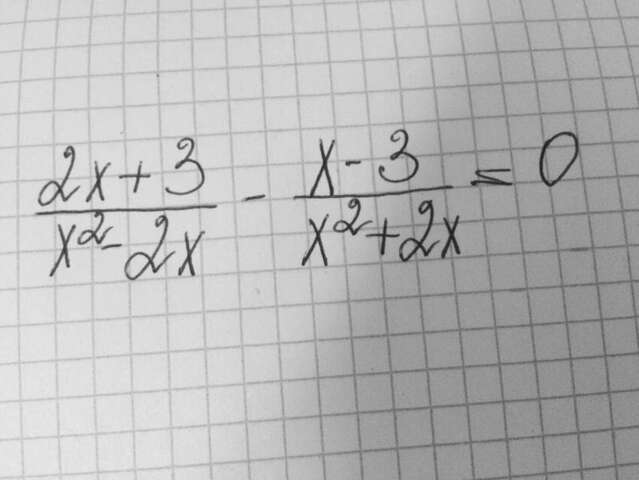 (2x+3)/(x²-2x) - (x-3)/(x²+2x) = 0